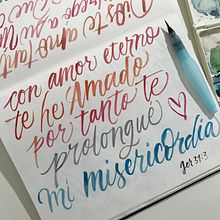 con amor eterno
te he Amado
por tanto te
prolongue
mi misericOrdia
jer 31:3